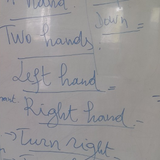 hand
Down
Two hands.
Left hand =
Right hand =
→ Turn right